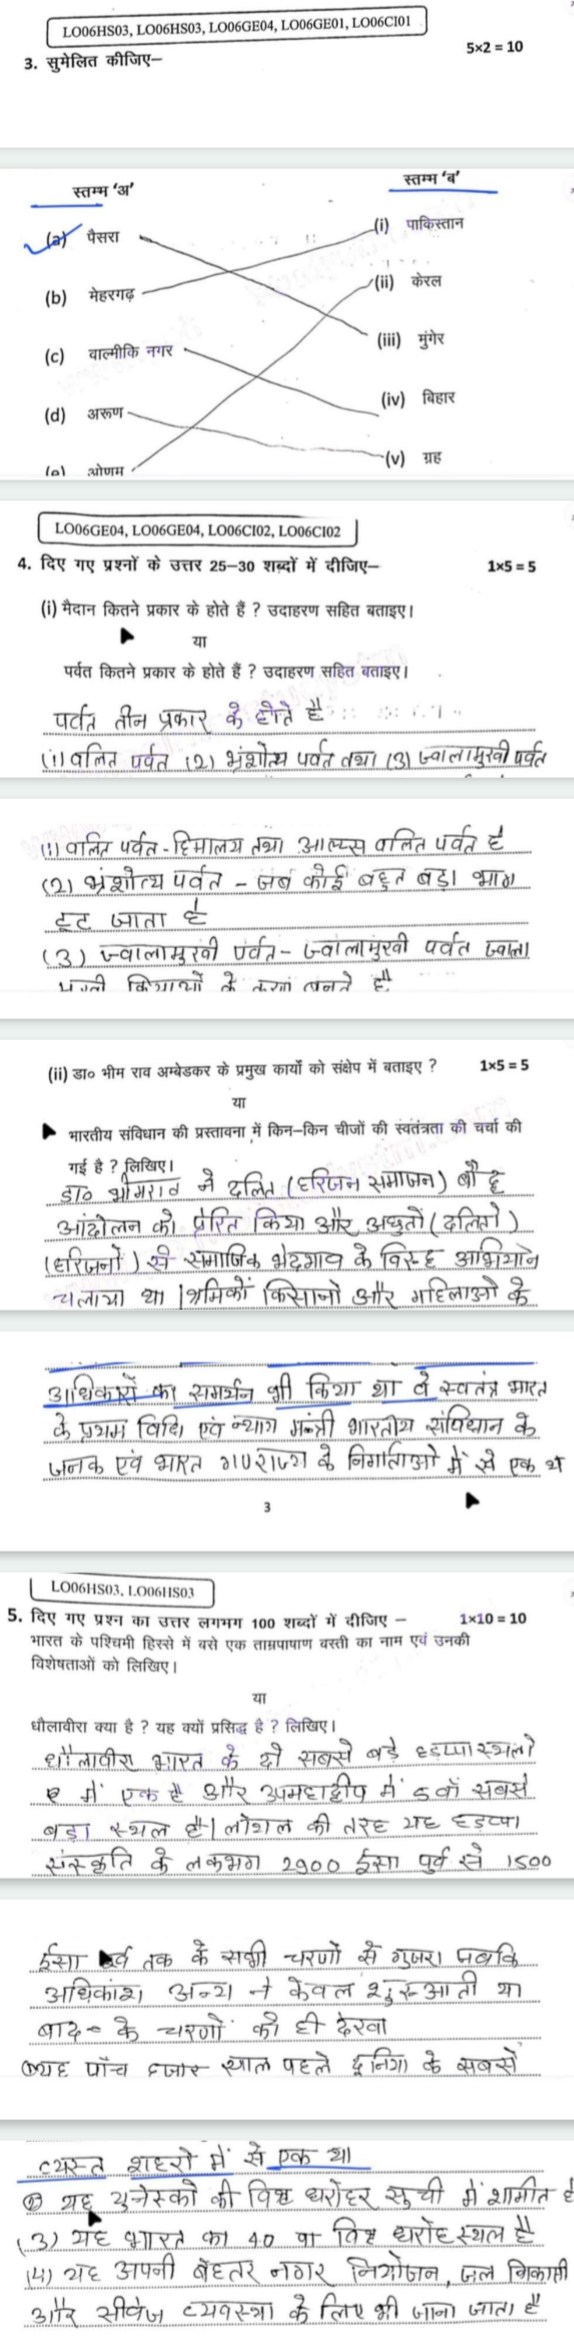 LO06HS03, LO06HS03, LO06GE04, LO06GE01, LO06CI01
3. सुमेलित कीजिए—
5×2 = 10
स्तम्भ 'अ'
स्तम्भ 'ब'
(a) पैसरा
(i) पाकिस्तान
(b) मेहरगढ़
(ii) केरल
(c) वाल्मीकि नगर
(iii) मुंगेर
(d) अरूण
(iv) बिहार
(e) ओणम
(v) ग्रह
LO06GE04, LO06GE04, LO06CI02, LO06CI02
4. दिए गए प्रश्नों के उत्तर 25–30 शब्दों में दीजिए—
1×5 = 5
(i) मैदान कितने प्रकार के होते हैं ? उदाहरण सहित बताइए।
या
पर्वत कितने प्रकार के होते हैं ? उदाहरण सहित बताइए।
पर्वत तीन प्रकार के होते है
(1) वलित पर्वत (2) भ्रंशोत्य पर्वत तथा (3) ज्वालामुखी पर्वत
(1) वलित पर्वत - हिमालय तथा आल्प्स वलित पर्वत है
(2) भ्रंशोत्य पर्वत - जब कोई बहुत बड़ा भाग
टूट जाता है
(3) ज्वालामुखी पर्वत - ज्वालामुखी पर्वत ज्वाला
मुखी क्रियाओं के बनते है
(ii) डा० भीम राव अम्बेडकर के प्रमुख कार्यों को संक्षेप में बताइए ?
1×5 = 5
या
भारतीय संविधान की प्रस्तावना में किन–किन चीजों की स्वतंत्रता की चर्चा की
गई है ? लिखिए।
डा० भीमराव ने दलित (हरिजन समाजन) बौद्ध
आंदोलन को प्रेरित किया और अछुतो (दलितो)
(हरिजनों) से समाजिक भेदभाव के विरुद्ध अभियान
चलाया था | श्रमिकों किसानो और महिलाओ के
अधिकारों का समर्थन भी किया था वे स्वतंत्र भारत
के प्रथम विधि एवं न्याय मन्त्री भारतीय संविधान के
जनक एवं भारत गणराज्य के निर्माताओ में से एक थे
3
LO06HS03, LO06HS03
5. दिए गए प्रश्न का उत्तर लगभग 100 शब्दों में दीजिए —
1×10 = 10
भारत के पश्चिमी हिस्से में बसे एक ताम्रपाषाण बस्ती का नाम एवं उनकी
विशेषताओं को लिखिए।
या
धौलावीरा क्या है ? यह क्यों प्रसिद्ध है ? लिखिए।
धौलावीरा भारत के दो सबसे बड़े हड़प्पा स्थलो
में एक है और उपमहाद्वीप में 5 वाँ सबसे
बड़ा स्थल है | लोथल की तरह यह हड़प्पा
संस्कृति के लकभग 2900 ईसा पुर्व से 1500
ईसा पूर्व तक के सभी चरणों से गुजरा जबकि
अधिकांश अन्य ने केवल शुरुआती या
बाद के चरणों को ही देखा
यह पाँच हजार साल पहले दुनिया के सबसे
व्यस्त शहरो में से एक था
यह युनेस्को की विश्व धरोहर सुची में शामील है
(3) यह भारत का 40 वा विश्व धरोह स्थल है
(4) यह अपनी बेहतर नगर नियोजन, जल निकासी
और सीवेज व्यवस्था के लिए भी जाना जाता है